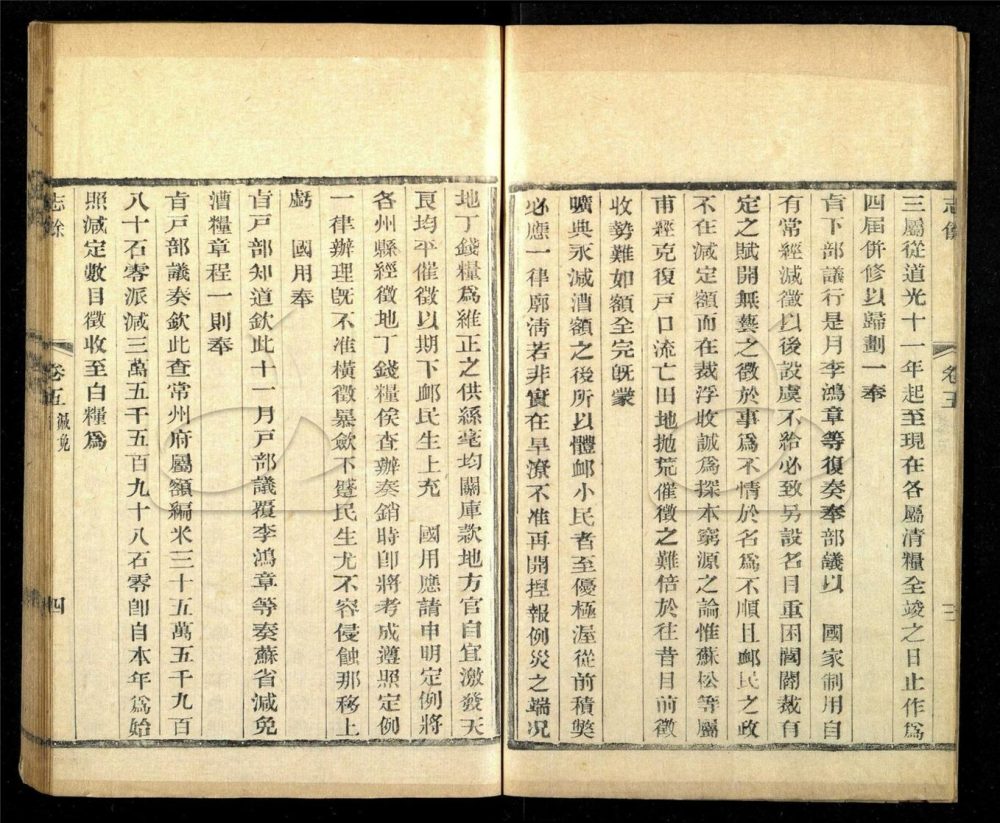 志餘 卷五
三屬從道光十一年起至現在各屬清糧全竣之日止作爲
四屆併修以歸劃一奉
旨下部議行是月李鴻章等復奏奉部議以 國家制用自
有常經減徵以後設虞不給必致另設名目重困閭閻裁有
定之賦開無藝之徵於事爲不情於名爲不順且䘏民之政
不在減定額而在裁浮收誠爲探本窮源之論惟蘇松等屬
甫經克復戸口流亡田地拋荒催徵之難倍於往昔目前徵
收勢難如額全完旣蒙
曠典永減漕額之後所以體䘏小民者至優極渥從前積獘
必應一律廓清若非實在旱潦不准再開捏報例災之端况
地丁錢糧爲維正之供絲毫均關庫款地方官自宜激發天
良均平催徵以期下䘏民生上充 國用應請申明定例將
各州縣經徵地丁錢糧俟查辦奏銷時卽將考成遵照定例
一律辦理旣不准橫徵暴歛下蹙民生尤不容侵蝕那移上
虧 國用奉
旨戸部知道欽此十一月戸部議覆李鴻章等奏蘇省減免
漕糧章程一則奉
旨戸部議奏欽此查常州府屬額編米三十五萬五千九百
八十石零派減三萬五千五百九十八石零卽自本年爲始
照減定數目徵收至白糧爲
志餘 卷五 減免 四